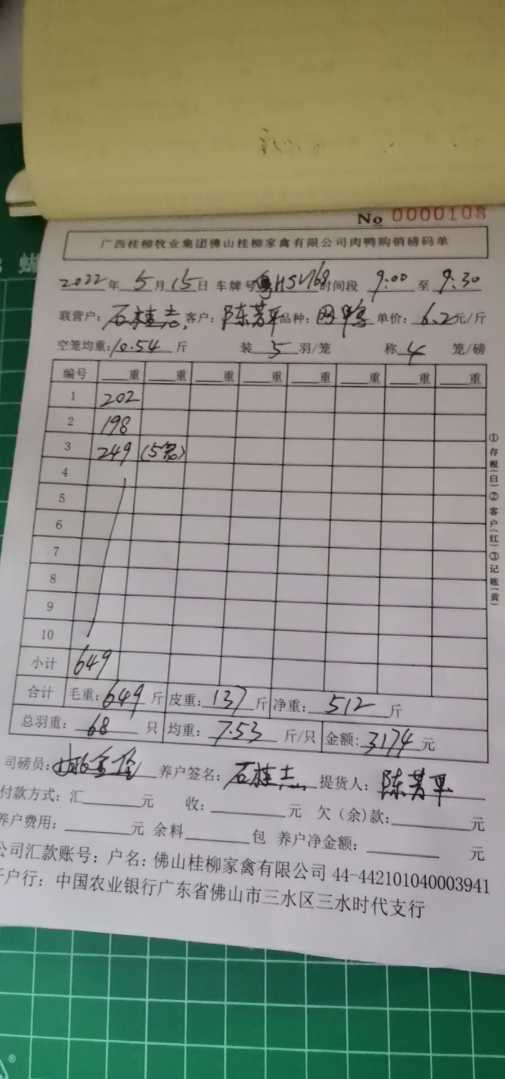 No 0000108
广西桂柳牧业集团佛山桂柳家禽有限公司肉鸭购销磅码单
2022年 5月15日 车牌号粤H5V768时间段 9:00 至 9:30
联营户:石桂志 客户:陈芳平 品种: 鸭 单价: 6.2元/斤
空笼均重:10.54 斤 装 5 羽/笼 称 4 笼/磅
编号 重 重 重 重 重 重 重 重
1 202
2 198
3 249 (5笼)
4
5
6
7
8
9
10
小计 649
合计 毛重:649斤 皮重:137斤 净重:512 斤
总羽重: 68 只 均重: 7.53 斤/只 金额:3174元
司磅员: 养户签名: 石桂志 提货人: 陈芳平
付款方式:汇 元 收: 元 欠(余)款: 元
养户费用: 元 余料 包 养户净金额: 元
公司汇款账号:户名:佛山桂柳家禽有限公司 44-442101040003941
开户行:中国农业银行广东省佛山市三水区三水时代支行
①存根(白)②客户(红)③记账(黄)